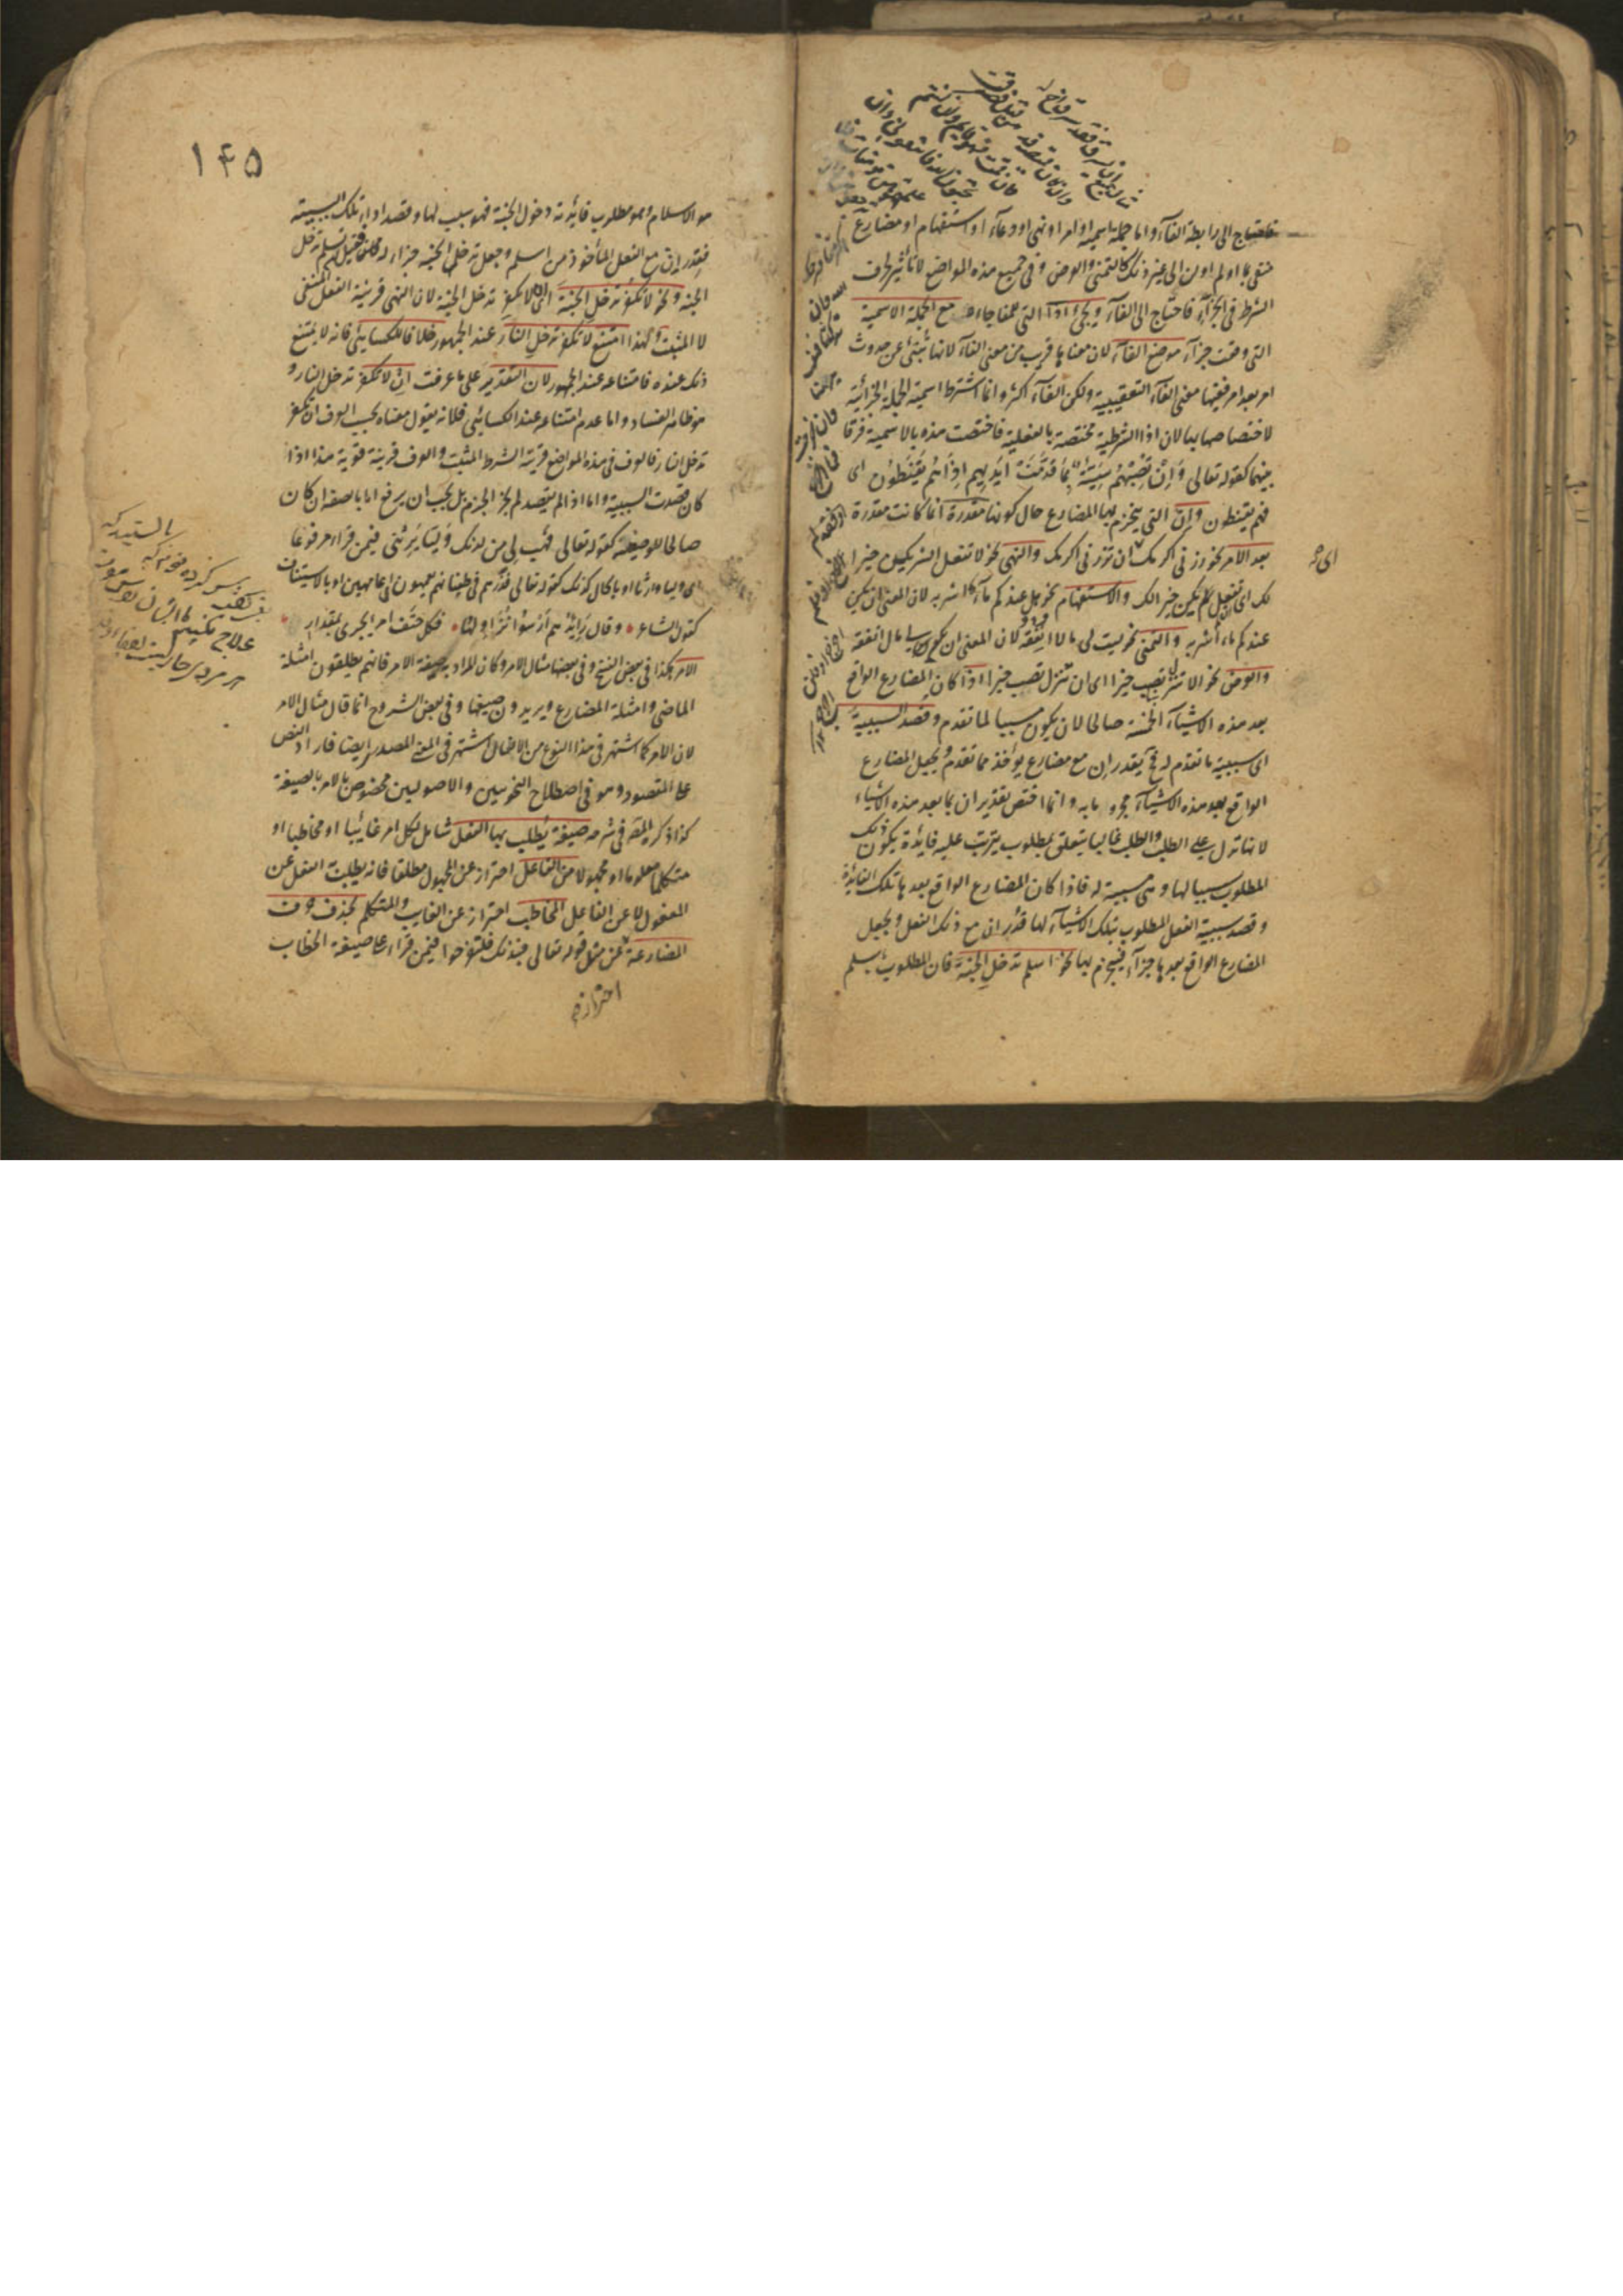 فاحتاج الى رابطة الفآء واما جملة اسمية او امر او نهى او دعآء او استفهام او مضارع
منفى بما او لم او لن الى غير ذلك كالتمنى والعرض وفى جميع هذه المواضع لا تأثير لحرف
الشرط فى الجزآء فاحتاج الى الفآء ويجئ اذا التى للمفاجاءة مع الجملة الاسمية
التى وقعت جزآء موضع الفآء لان معناها قريب من معنى الفآء لانها تنبئ عن حدوث
امر بعد امر ففيها معنى الفآء التعقيبية ولكن الفآء اكثر وانما اشترط اسمية الجملة الجزائية
لاختصاصها بها لان اذا الشرطية مختصة بالفعلية فاختصت هذه بالاسمية فرقا
بينهما كقوله تعالى وَاِنْ تُصِبْهُمْ سَيِّئَةٌ بِمَا قَدَّمَتْ اَيْدِيهِم اِذَا هُمْ يَقْنَطُونَ اى
فهم يقنطون وان التى ينجزم بها المضارع حال كونها مقدرة انما كانت مقدرة
بعد الامر نحو زرنى اكرمك اى ان تزرنى اكرمك والنهى نحو لا تفعل الشر يكن خيرا
لك اى ان لم تفعل يكن خيرا لك والاستفهام نحو هل عندكم مآء اشربه لان المعنى ان يكن
عندكم ماء اشربه والتمنى نحو ليت لى مالا انفقه لان المعنى ان يكن لى مال انفقه
والعرض نحو الا تنزل تصب خيرا اى ان تنزل تصب خيرا اذا كان المضارع الواقع
بعد هذه الاشيآء الخمسة صالحا لان يكون مسببا لما تقدم وقصد السببية
اى سببية ما تقدم له فح يقدر ان مع مضارع يؤخذ مما تقدم ويجعل المضارع
الواقع بعد هذه الاشيآء مجزوما به وانما اختص تقدير ان بما بعد هذه الاشياء
لانها تدل على الطلب والطلب غالبا يتعلق بمطلوب يترتب عليه فايدة يكون ذلك
المطلوب سببا لها وهى مسببة له فاذا كان المضارع الواقع بعدها تلك الفايدة
وقصد سببية الفعل المطلوب بتلك الاشيآء لها قدر ان مع ذلك الفعل ويجعل
المضارع الواقع بعدها جزآء فينجزم بها نحو اسلم تدخل الجنة فان المطلوب باسلم
۱۴۵
هو الاسلام وهو مطلوب فايدته دخول الجنة فهو سبب لها وقصد اداء تلك السببية
فقدر ان مع الفعل المأخوذ من اسلم وجعل تدخل الجنة جزاء له فقيل ان تسلم تدخل
الجنة ونحو لا تكفر تدخل الجنة اى ان لا تكفر تدخل الجنة لان النهى قرينة الفعل المنفى
لا المثبت ولهذا امتنع لا تكفر تدخل النار عند الجمهور خلافا للكسائى فانه لا يمتنع
ذلك عنده فامتناعه عند الجمهور لان التقدير على ما عرفت ان لا تكفر تدخل النار و
هو ظاهر الفساد واما عدم امتناعه عند الكسائى فلانه يقول معناه بحسب العرف ان تكفر
تدخل النار فالعرف فى هذه المواضع قرينة الشرط المثبت والعرف قرينة قوية هذا اذا
كان قصدت السببية واما اذا لم يقصد لم يجز الجزم بل يجب ان يرفع اما بالصفة ان كان
صالحا للوصفية كقوله تعالى فهب لى من لدنك وليا يرثنى فيمن قراء مرفوعا
اى وليا وارثا او بالحال كذلك كقوله تعالى فذرهم فى طغيانهم يعمهون اى عامهين او بالاستيناف
كقول الشاعر وقال رَائِدُهُم اُرْسُوا نُزَاوِلُهَا فكل حتف امرئ يجرى بمقدار
الامر هكذا فى بعض النسخ وفى بعضها مثال الامر وكان المراد به صيغة الامر فانهم يطلقون امثلة
الماضى وامثلة المضارع ويريدون صيغها وفى بعض الشروح انما قال مثال الامر
لان الامر كما اشتهر فى هذا النوع من الافعال اشتهر فى المعنى المصدرى ايضا فاراد النص
على المقصود وهو فى اصطلاح النحويين والاصوليين مخصوص بالامر بالصيغة
كذا ذكره المص فى شرحه صيغة يُطلب بها الفعل شامل لكل امر غايبا او مخاطبا او
متكلما معلوما او مجهولا من الفاعل احتراز عن المجهول مطلقا فانه يطلب الفعل عن
المفعول لا عن الفاعل المخاطب احتراز عن الغايب والمتكلم بحذف حرف
المضارعة عن مثل قوله تعالى فبذلك فلتفرحوا فيمن قراء على صيغة الخطاب
احتراز